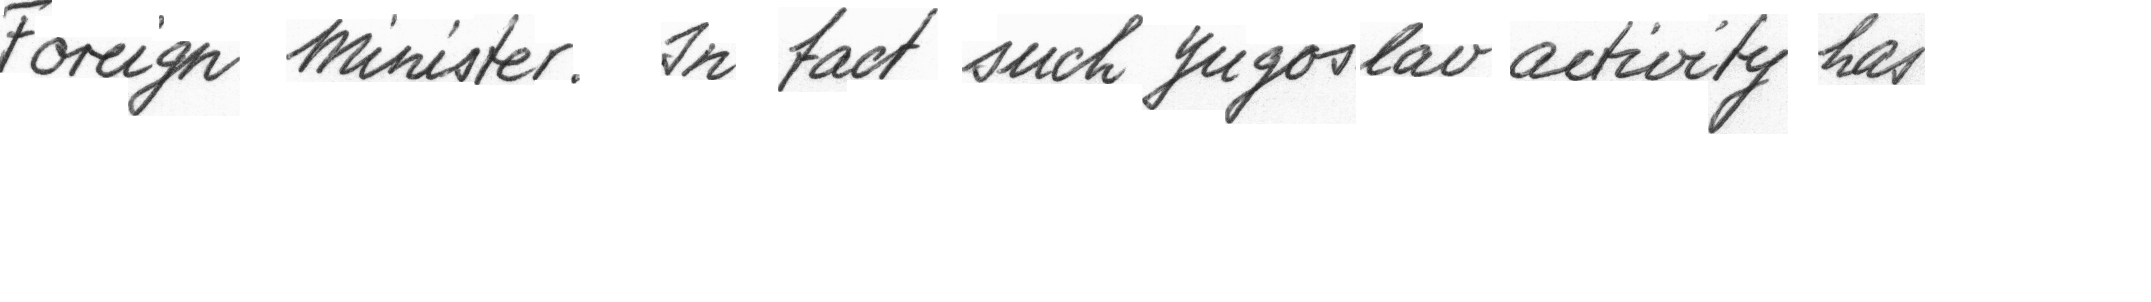 Foreign Minister. In fact such Yugoslav activity has